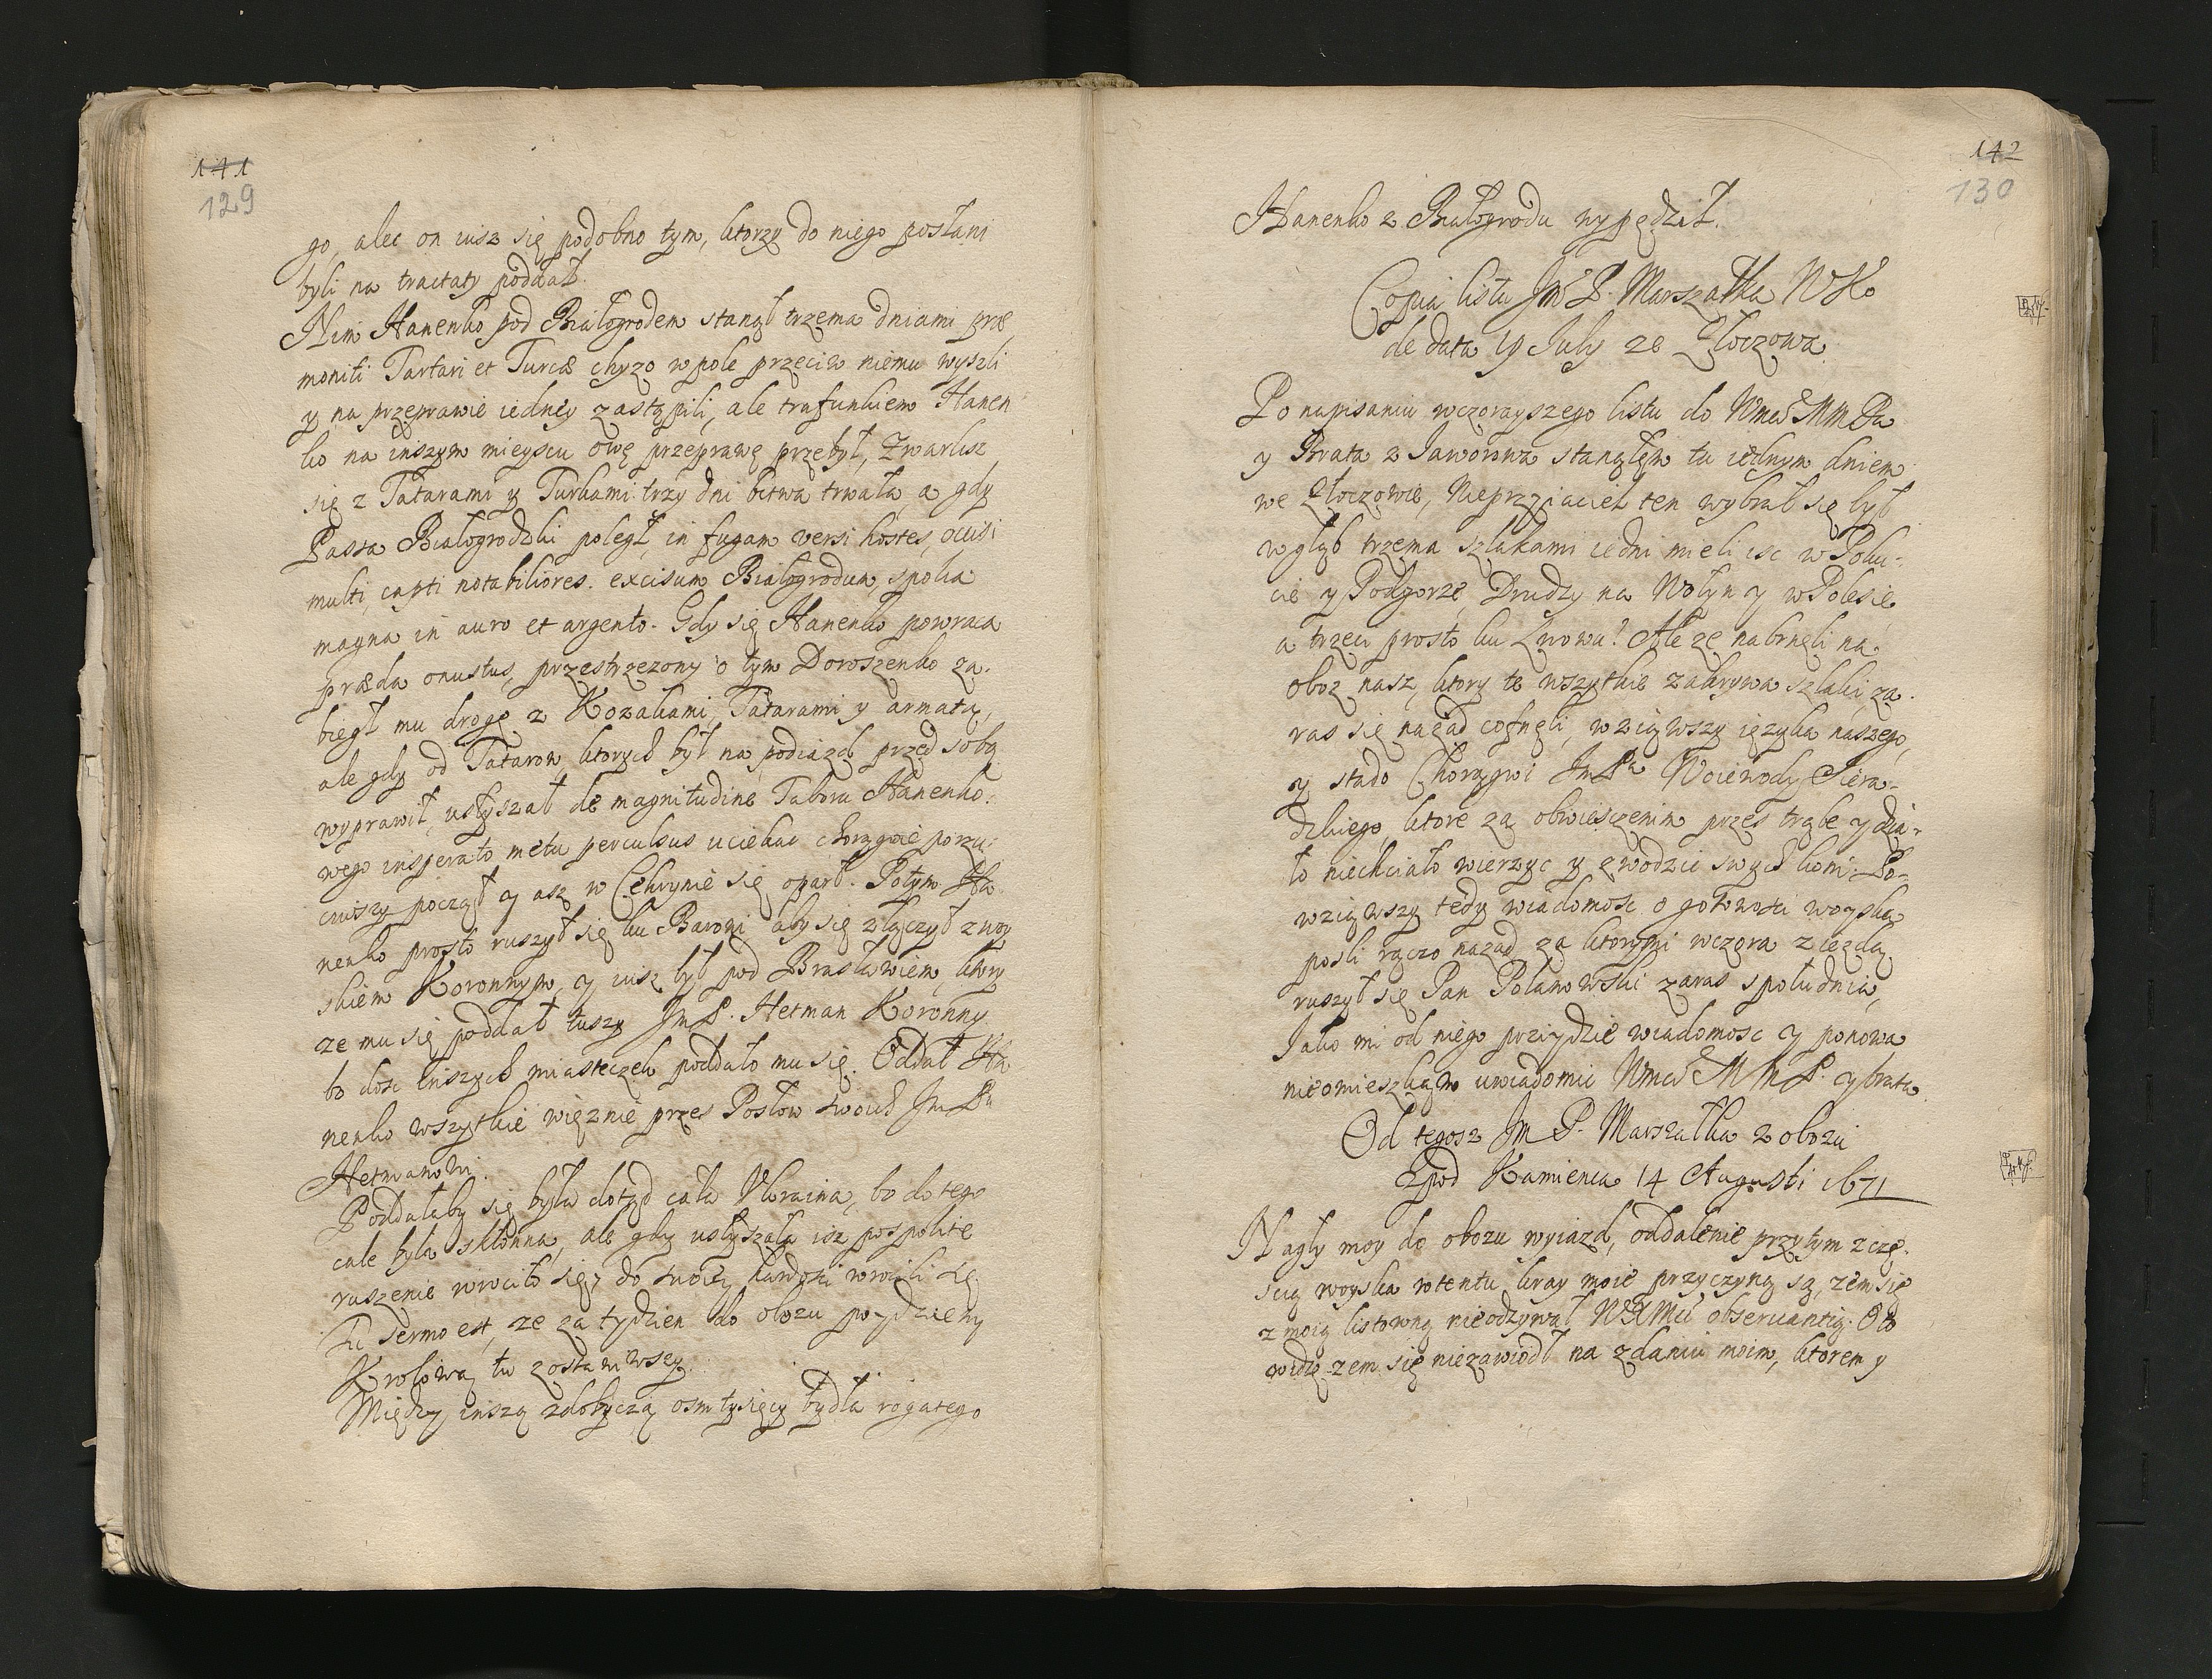 141
129
go, alec on iusz się podobno tym, ktorzy do niego posłani
byli na tractaty poddał.
Nim Hanenko pod Białogrodem stanął trzema dniami præ
moniti Tartari et Turcæ chyzo w pole przeciw niemu wyszli
y na przeprawie iedney zastąpili, ale trafunkiem Hanen
ko na inszym mieyscu owę przeprawę przebył, Zwarłsz
się z Tatarami y Turkami trzy dni bitwa trwała, a gdy
Passa Białogrodzki poległ, in fugam versi hostes, occisi
multi, capti notabiliores. excisum Białogrodum, spolia
magna in auro et argento. Gdy się Hanenko powraca
præda onustus, przestrzezony o tym Doroszenko za-
biegł mu drogę z Kozakami, Tatarami y armatą,
ale gdy od Tatarow, ktorych był na podiazd przed sobą
wyprawił, usłyszał de magnitudine Taboru Hanenko-
wego insperato metu perculsus uciekać chorągwie porzu-
ciwszy począł y asz w Cehrynie się oparł. Potym Ha-
nenko prosto ruszył się ku Barowi aby się złączył z woy
skiem Koronnym, y iusz był pod Brasławiem, ktory
ze mu się poddał tuszy Jm P. Hetman Koronny
bo dosc inszych miasteczek poddało mu się. Oddał Ha
nenko wszytkie więznie przes Posłow swoich Jm Pu
Hetmanowi.
Poddałaby się była dotąd cała Ukraina, bo do tego
cale była skłonna, ale gdy usłyszała isz pospolite
ruszenie wrociło się, do swoiey hardosci wrocili się.
Tu sermo est, ze za tydzien do obozu poydziemy
Krolową tu zostawiwszy.
Między inszą zdobyczą osm tysięcy bydła rogatego
142
130
Hanenko z Białogrodu wypędził.
Copia listu Jmci P. Marszałka WKo
de data 19 July ze Złoczowa
Po napisaniu wczorayszego listu do Wmci MmPa
y Brata z Jaworowa stanąłem tu iednym dniem
we Złoczowie, Nieprzyiaciel ten wybrał się był
w głąb trzema szlakami iedni mieli isc w Poku-
cie y Podgorze, Drudzy na Wołyn y w Polesie
a trzeci prosto ku Lwowu. Ale ze nabrneli na
oboz nasz, ktory te wszytkie zakrywa szlaki, za
ras się nazad cofneli, wziąwszy ięzyka naszego,
y stado Chorągwi Jm Pa Woiewody Siera-
dzkiego, ktore za obwiesczenim przes trąbe y dzia-
ło niechciało wierzyc y zwodzic swych koni. Po-
wziąwszy tedy wiadomosc o gotowosci woyska
posli rączo nazad za ktorymi wczora z iezdą
ruszył się Pan Polanowski zaras społudnia,
Jako mi od niego przyydzie wiadomosc y ponowa
nieomieszkam uwiadomic Wmci MmP. y brata
Od tegosz Jm P. Marszałka z obozu
Zpod Kamienca 14 Augusti 1671
Nagły moy do obozu wyiazd, oddalenie przytym z czę-
scią woyska w tentu kray moie przyczyną są, zem się
z moią listowną nieodzywał WXMci observantią. Oto
widzę zem się niezawiodł na zdaniu moim, ktorem y